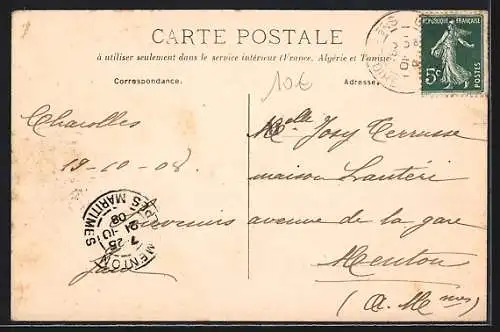 CARTE POSTALE
à utiliser seulement dans le service intérieur (France, Algérie et Tunisie
Correspondance. Adresse
10€
REPUBLIQUE FRANÇAISE
5c
POSTES
Charolles
18-10-08
Souvenirs
MENTON
7 25
21-10
08
ALPES MARITIMES
Melle Josy Terrusse
maison Lautéri
avenue de la gare
Menton
(A. Mmes)